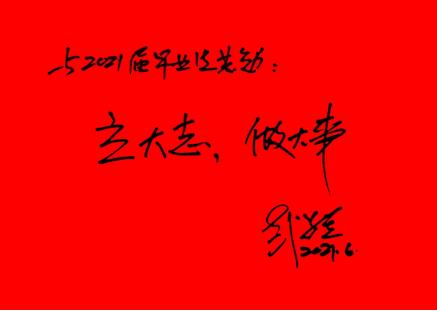 与2021届毕业生共勉：
立大志，做大事
2021.6.